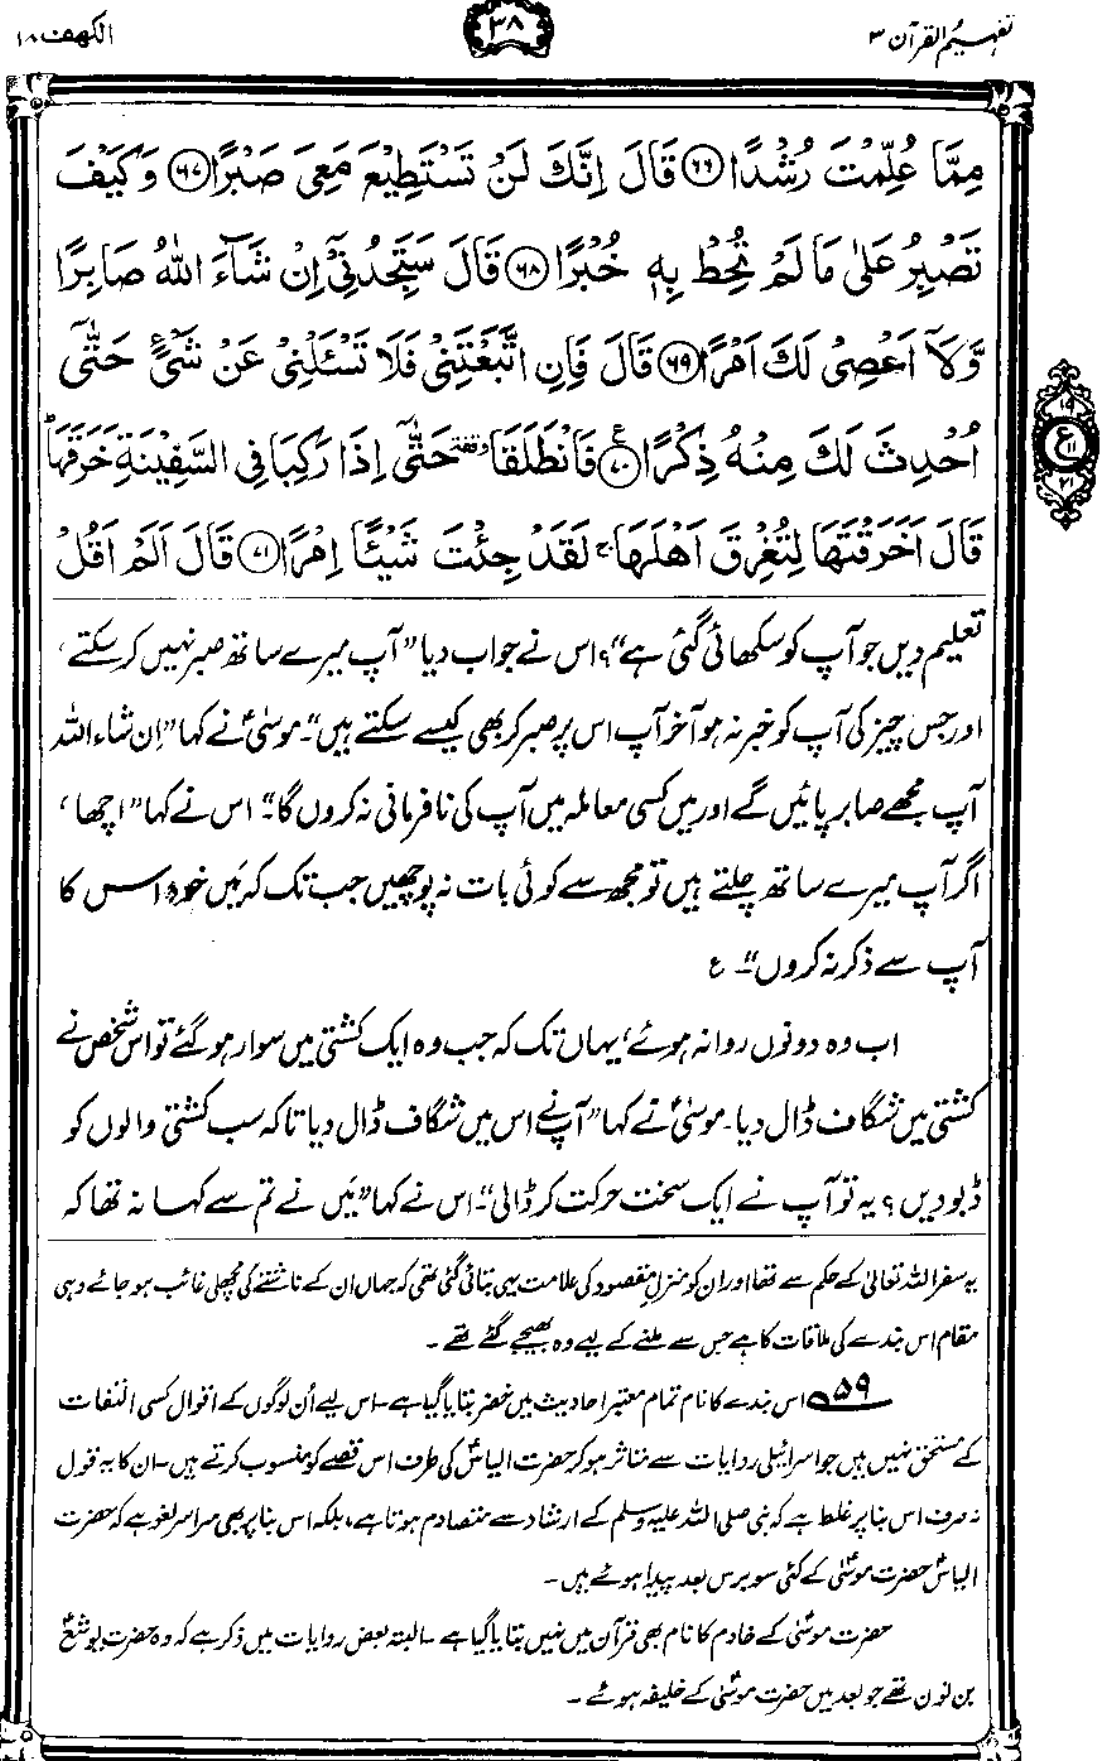 تفہیم القرآن ۳
۳۸
الکہف ۱۸
مِمَّا عُلِّمْتَ رُشْدًا ﴿۶۶﴾ قَالَ اِنَّكَ لَنْ تَسْتَطِيْعَ مَعِىَ صَبْرًا ﴿۶۷﴾ وَكَيْفَ
تَصْبِرُ عَلٰى مَا لَمْ تُحِطْ بِهٖ خُبْرًا ﴿۶۸﴾ قَالَ سَتَجِدُنِىْٓ اِنْ شَآءَ اللّٰهُ صَابِرًا
وَّلَآ اَعْصِىْ لَكَ اَمْرًا ﴿۶۹﴾ قَالَ فَاِنِ اتَّبَعْتَنِىْ فَلَا تَسْـَٔلْنِىْ عَنْ شَىْءٍ حَتّٰٓى
اُحْدِثَ لَكَ مِنْهُ ذِكْرًا ﴿۷۰﴾ ع فَانْطَلَقَا وقفة حَتّٰٓى اِذَا رَكِبَا فِى السَّفِيْنَةِ خَرَقَهَا ط
۱۵
ع
۱۱
۲۱
قَالَ اَخَرَقْتَهَا لِتُغْرِقَ اَهْلَهَا ج لَقَدْ جِئْتَ شَيْـًٔا اِمْرًا ﴿۷۱﴾ قَالَ اَلَمْ اَقُلْ
تعلیم دیں جو آپ کو سکھائی گئی ہے“؟ اس نے جواب دیا ”آپ میرے ساتھ صبر نہیں کر سکتے،
اور جس چیز کی آپ کو خبر نہ ہو آخر آپ اس پر صبر کر بھی کیسے سکتے ہیں“۔ موسیٰؑ نے کہا ”ان شاء اللہ
آپ مجھے صابر پائیں گے اور میں کسی معاملہ میں آپ کی نافرمانی نہ کروں گا“۔ اس نے کہا ”اچھا،
اگر آپ میرے ساتھ چلتے ہیں تو مجھ سے کوئی بات نہ پوچھیں جب تک کہ مَیں خود اس کا
آپ سے ذکر نہ کروں“۔ ع
اب وہ دونوں روانہ ہوئے، یہاں تک کہ جب وہ ایک کشتی میں سوار ہو گئے تو اس شخص نے
کشتی میں شگاف ڈال دیا۔ موسیٰؑ نے کہا ”آپ نے اس میں شگاف ڈال دیا تاکہ سب کشتی والوں کو
ڈبو دیں؟ یہ تو آپ نے ایک سخت حرکت کر ڈالی“۔ اس نے کہا ”مَیں نے تم سے کہا نہ تھا کہ
یہ سفر اللہ تعالیٰ کے حکم سے تھا اور ان کو منزلِ مقصود کی علامت یہی بتائی گئی تھی کہ جہاں ان کے ناشتے کی مچھلی غائب ہو جائے وہی
مقام اس بندے کی ملاقات کا ہے جس سے ملنے کے لیے وہ بھیجے گئے تھے۔
۵۹؎ اس بندے کا نام تمام معتبر احادیث میں خضر بتایا گیا ہے۔ اس لیے اُن لوگوں کے اقوال کسی التفات
کے مستحق نہیں ہیں جو اسرائیلی روایات سے متاثر ہو کر حضرت الیاسؑ کی طرف اس قصے کو منسوب کرتے ہیں۔ ان کا یہ قول
نہ صرف اس بنا پر غلط ہے کہ نبی صلی اللہ علیہ وسلم کے ارشاد سے متصادم ہوتا ہے، بلکہ اس بنا پر بھی سراسر لغو ہے کہ حضرت
الیاسؑ حضرت موسیٰؑ کے کئی سو برس بعد پیدا ہوئے ہیں۔
حضرت موسیٰؑ کے خادم کا نام بھی قرآن میں نہیں بتایا گیا ہے۔ البتہ بعض روایات میں ذکر ہے کہ وہ حضرت یوشعؑ
بن نون تھے جو بعد میں حضرت موسیٰؑ کے خلیفہ ہوئے۔